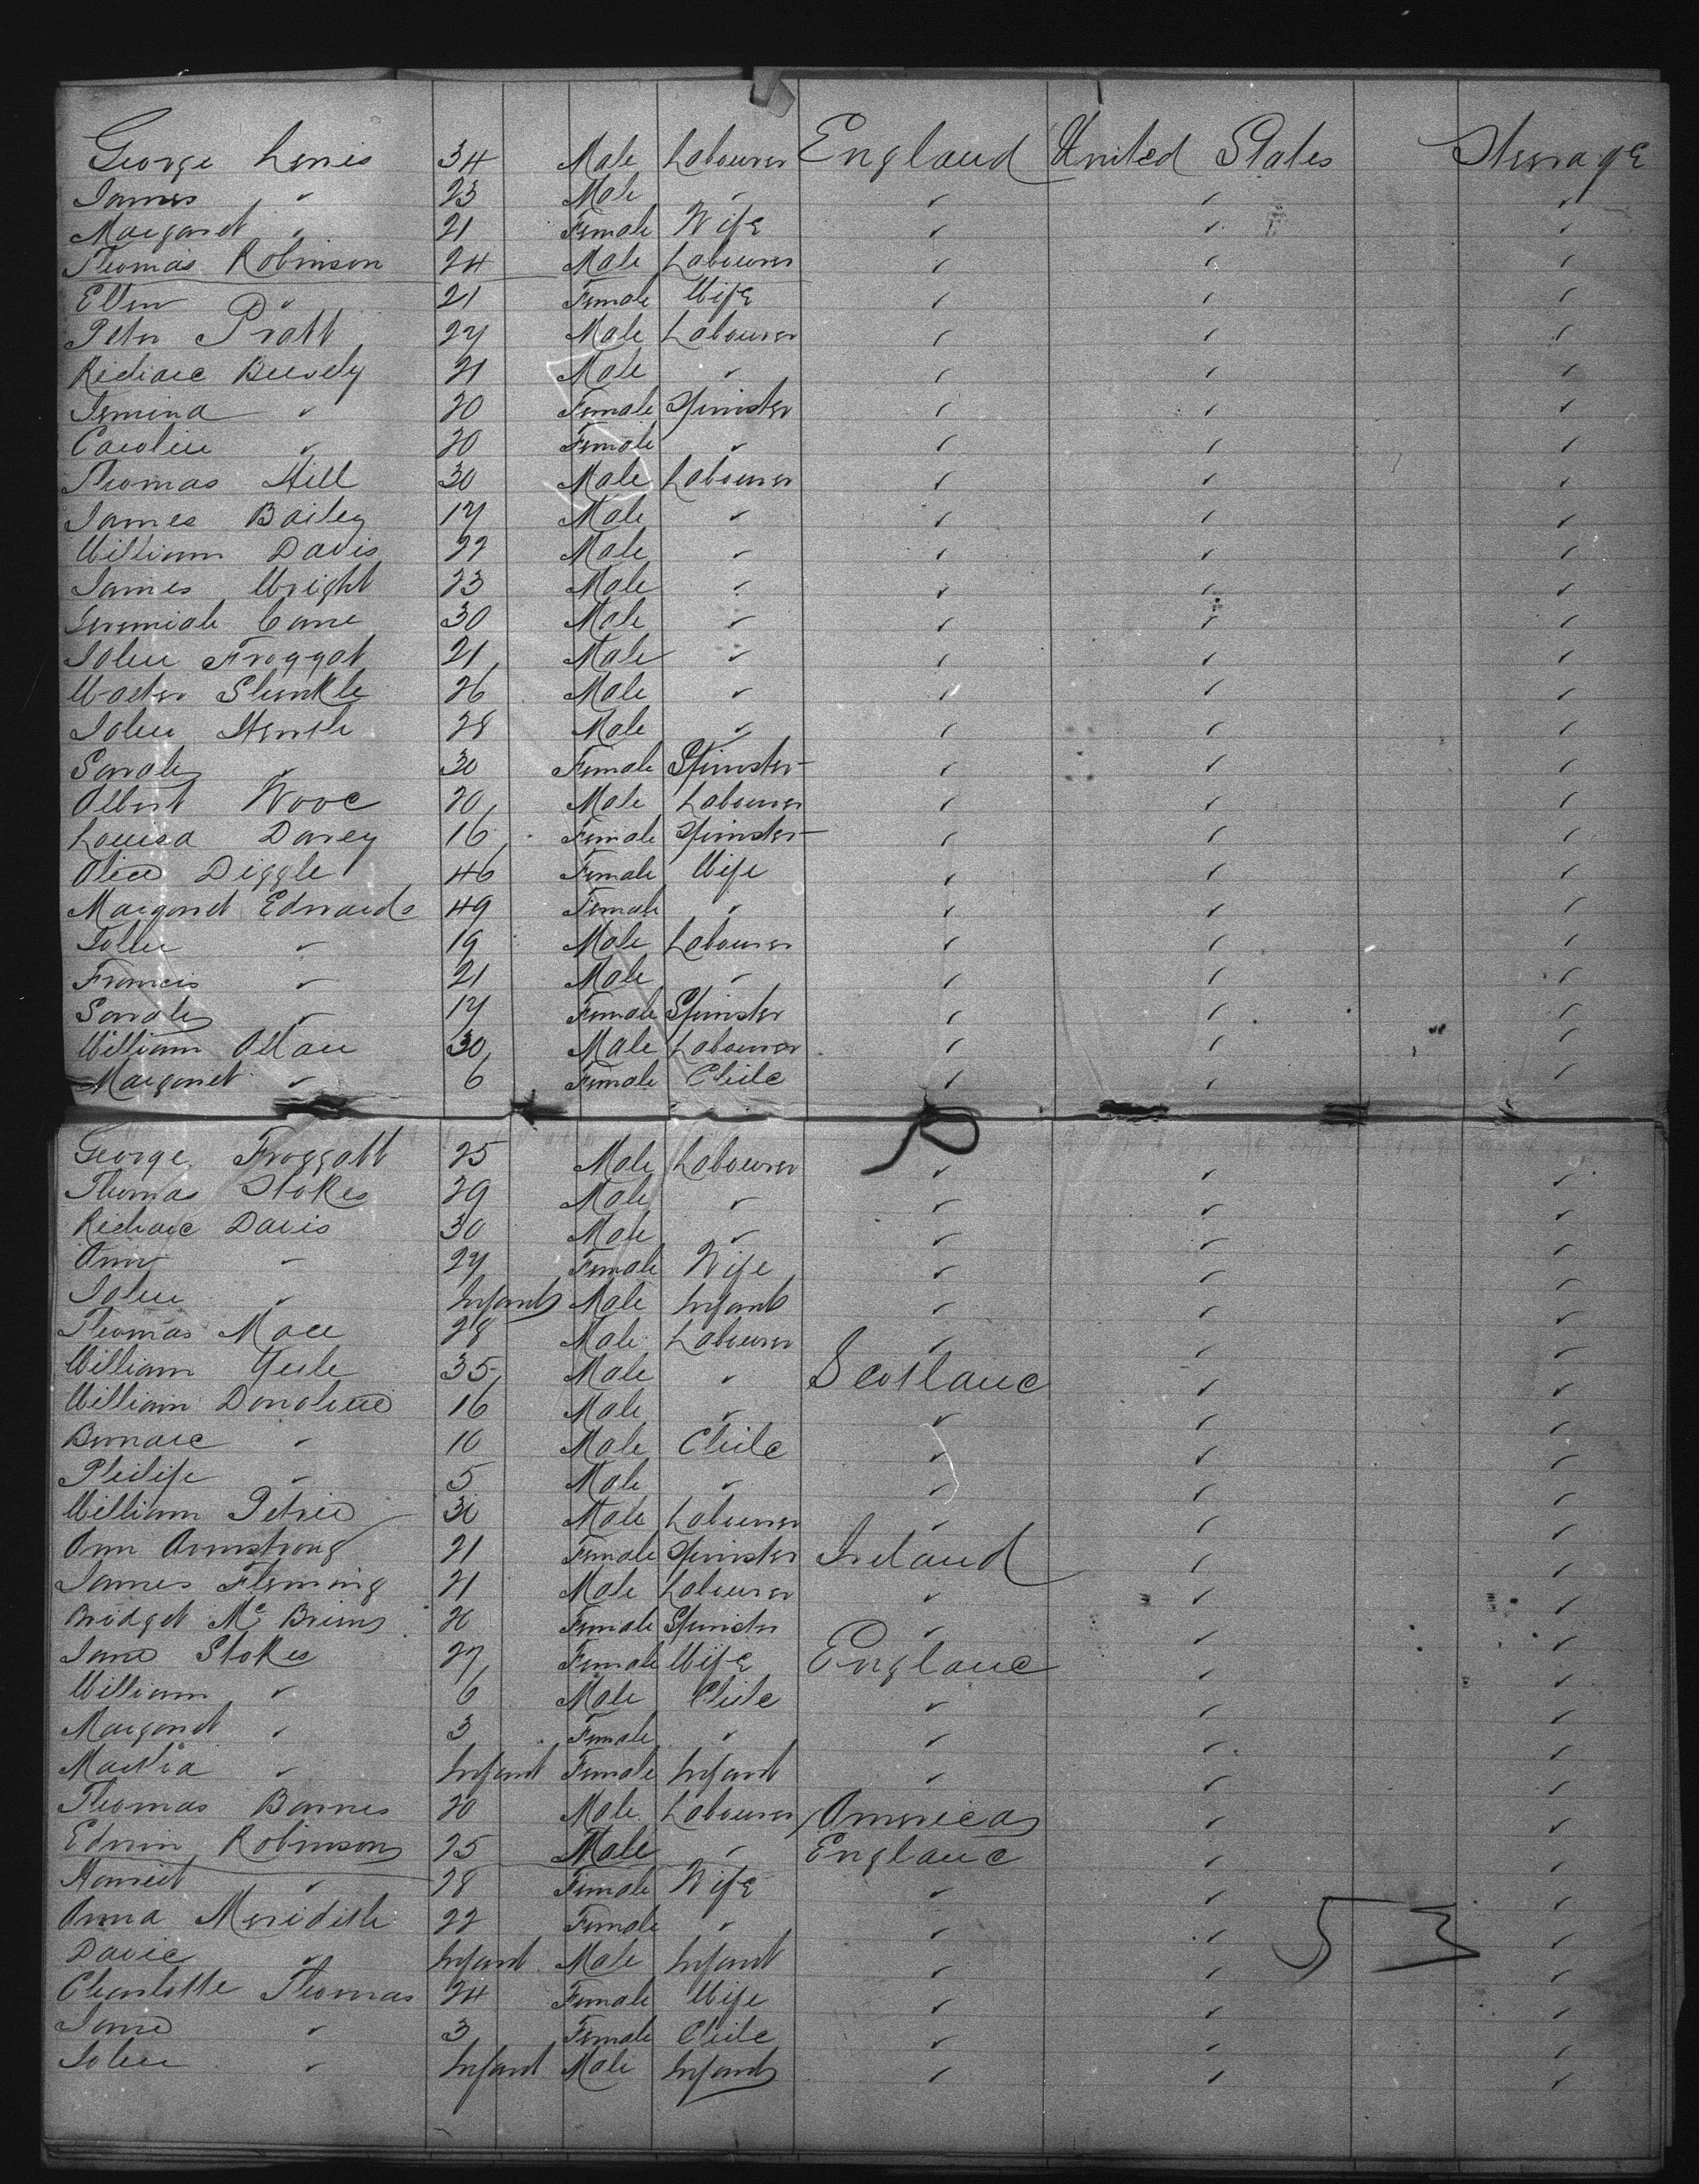 George Lewis 34 Male Labourer England United States Steerage
James " 23 Male " " " "
Margaret " 21 Female Wife " " "
Thomas Robinson 24 Male Labourer " " "
Ellen " 21 Female Wife " " "
Peter Pratt 27 Male Labourer " " "
Richard 21 Male " " " "
Jemima " 20 Female Spinster " " "
Caroline " 20 Female " " " "
Thomas Hill 30 Male Labourer " " "
James Bailey 17 Male " " " "
William Davis 22 Male " " " "
James Wright 23 Male " " " "
Jeremiah Cane 30 Male " " " "
John Froggat 21 Male " " " "
Walter 26 Male " " " "
John 28 Male " " " "
Sarah " 30 Female Spinster " " "
Albert Wood 20 Male Labourer " " "
Louisa Davey 16 Female Spinster " " "
Alice Diggle 46 Female Wife " " "
Margaret Edwards 49 Female " " " "
John " 19 Male Labourer " " "
Francis " 21 Male " " " "
Sarah " 17 Female Spinster " " "
William Allan 30 Male Labourer " " "
Margaret " 6 Female Child " " "
George Froggatt 25 Male Labourer " " "
Thomas Stokes 29 Male " " " "
Richard Davis 30 Male " " " "
Ann " 27 Female Wife " " "
John " Infant Male Infant " " "
Thomas Mace 28 Male Labourer " " "
William Yule 35 Male " Scotland " "
William Donohue 16 Male " " " "
Bernard " 10 Male Child " " "
Philip " 5 Male " " " "
William Petrie 30 Male Labourer " " "
Ann Armstrong 21 Female Spinster Ireland " "
James Fleming 21 Male Labourer " " "
Bridget Female Spinster " " "
Jane Stokes 27 Female Wife England " "
William " 6 Male Child " " "
Margaret " 3 Female " " " "
Martha " Infant Female Infant " " "
Thomas Barnes 20 Male Labourer America " "
Edwin Robinson 25 Male " England " "
Harriet " 28 Female Wife " " "
Anna Meridith 22 Female " " " "
David " Infant Male Infant " " "
Charlotte Thomas 24 Female Wife " " "
Jane " 3 Female Child " " "
John " Infant Male Infant " " "
53